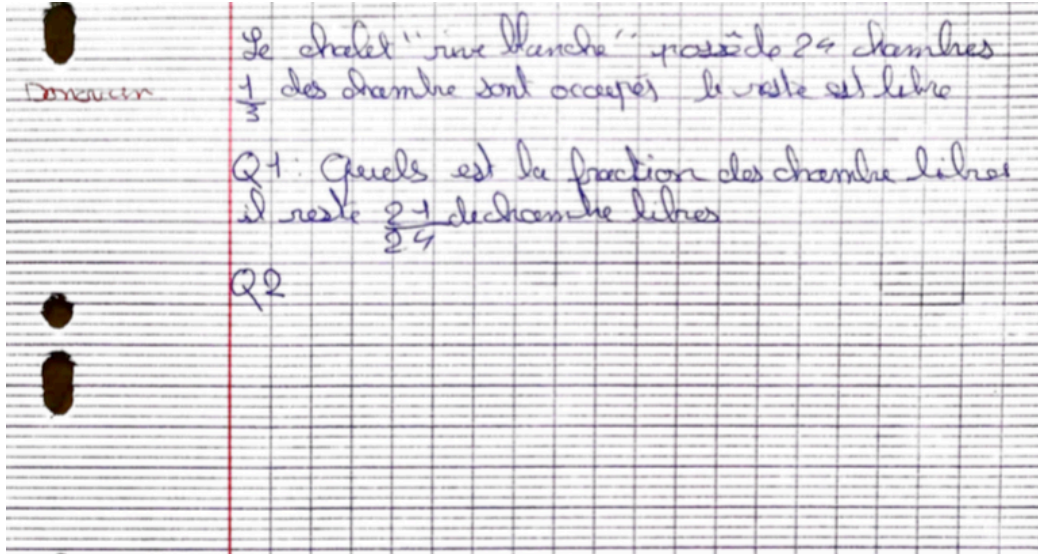 Le chalet "rive blanche" possède 24 chambres
Donovan
1/3 des chambre sont occupés le reste est libre
Q1: Quels est la fraction des chambre libres
il reste 21/24 de chambre libres
Q2